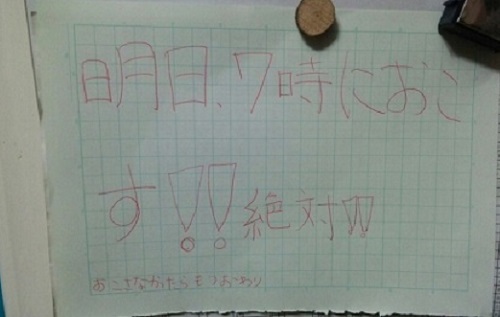 明日、7時におこ
す!!絶対!!
おこさなかったらもうおわり